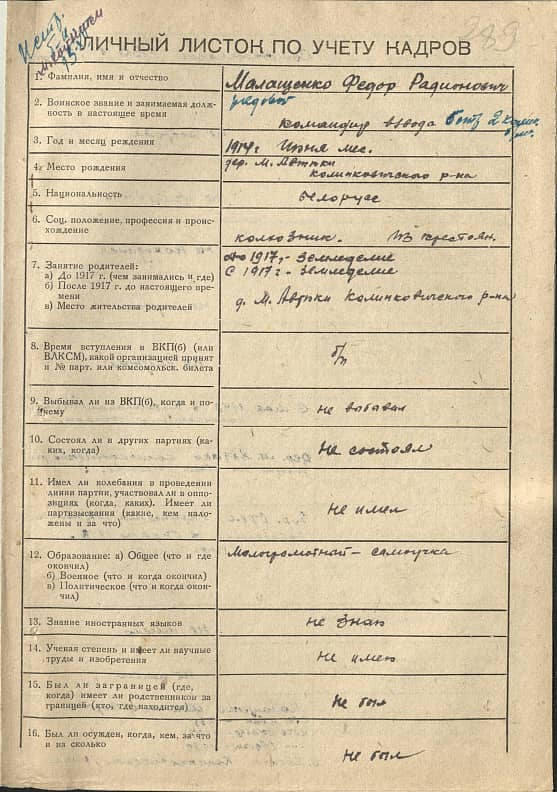 289
ЛИЧНЫЙ ЛИСТОК ПО УЧЕТУ КАДРОВ
1. Фамилия, имя и отчество
Малащенко Федор Радионович
2. Воинское звание и занимаемая долж-
ность в настоящее время
рядовой
командир взвода
3. Год и месяц рождения
1914 г. Июня мес.
4. Место рождения
дер. М. Автюки
Калинковичского р-на
5. Национальность
Белорусс
6. Соц. положение, профессия и проис-
хождение
колхозник. Из крестьян.
7. Занятие родителей:
а) До 1917 г. (чем занимались и где)
б) После 1917 г. до настоящего вре-
мени
в) Место жительства родителей
До 1917, - Земледелие
С 1917 г - Земледелие
д. М. Автюки Калинковичского р-на
8. Время вступления в ВКП(б) (или
ВЛКСМ), какой организацией принят
и № парт. или комсомольск. билета
б/п
9. Выбывал ли из ВКП(б), когда и по-
чему
не выбавал
10. Состоял ли в других партиях (ка-
ких, когда)
Не состоял
11. Имел ли колебания в проведении
линии партии, участвовал ли в оппо-
зициях (когда, каких). Имеет ли
партвзыскания (какие, кем нало-
жены и за что)
Не имел
12. Образование: а) Общее (что и где
окончил)
б) Военное (что и когда окончил)
в) Политическое (что и когда окон-
чил)
Малограмотный - самоучка
13. Знание иностранных языков
не знаю
14. Ученая степень и имеет ли научные
труды и изобретения
не имею
15. Был ли заграницей (где,
когда) имеет ли родственников за
границей (кто, где находится)
Не был
16. Был ли осужден, когда, кем, за что
и на сколько
не был